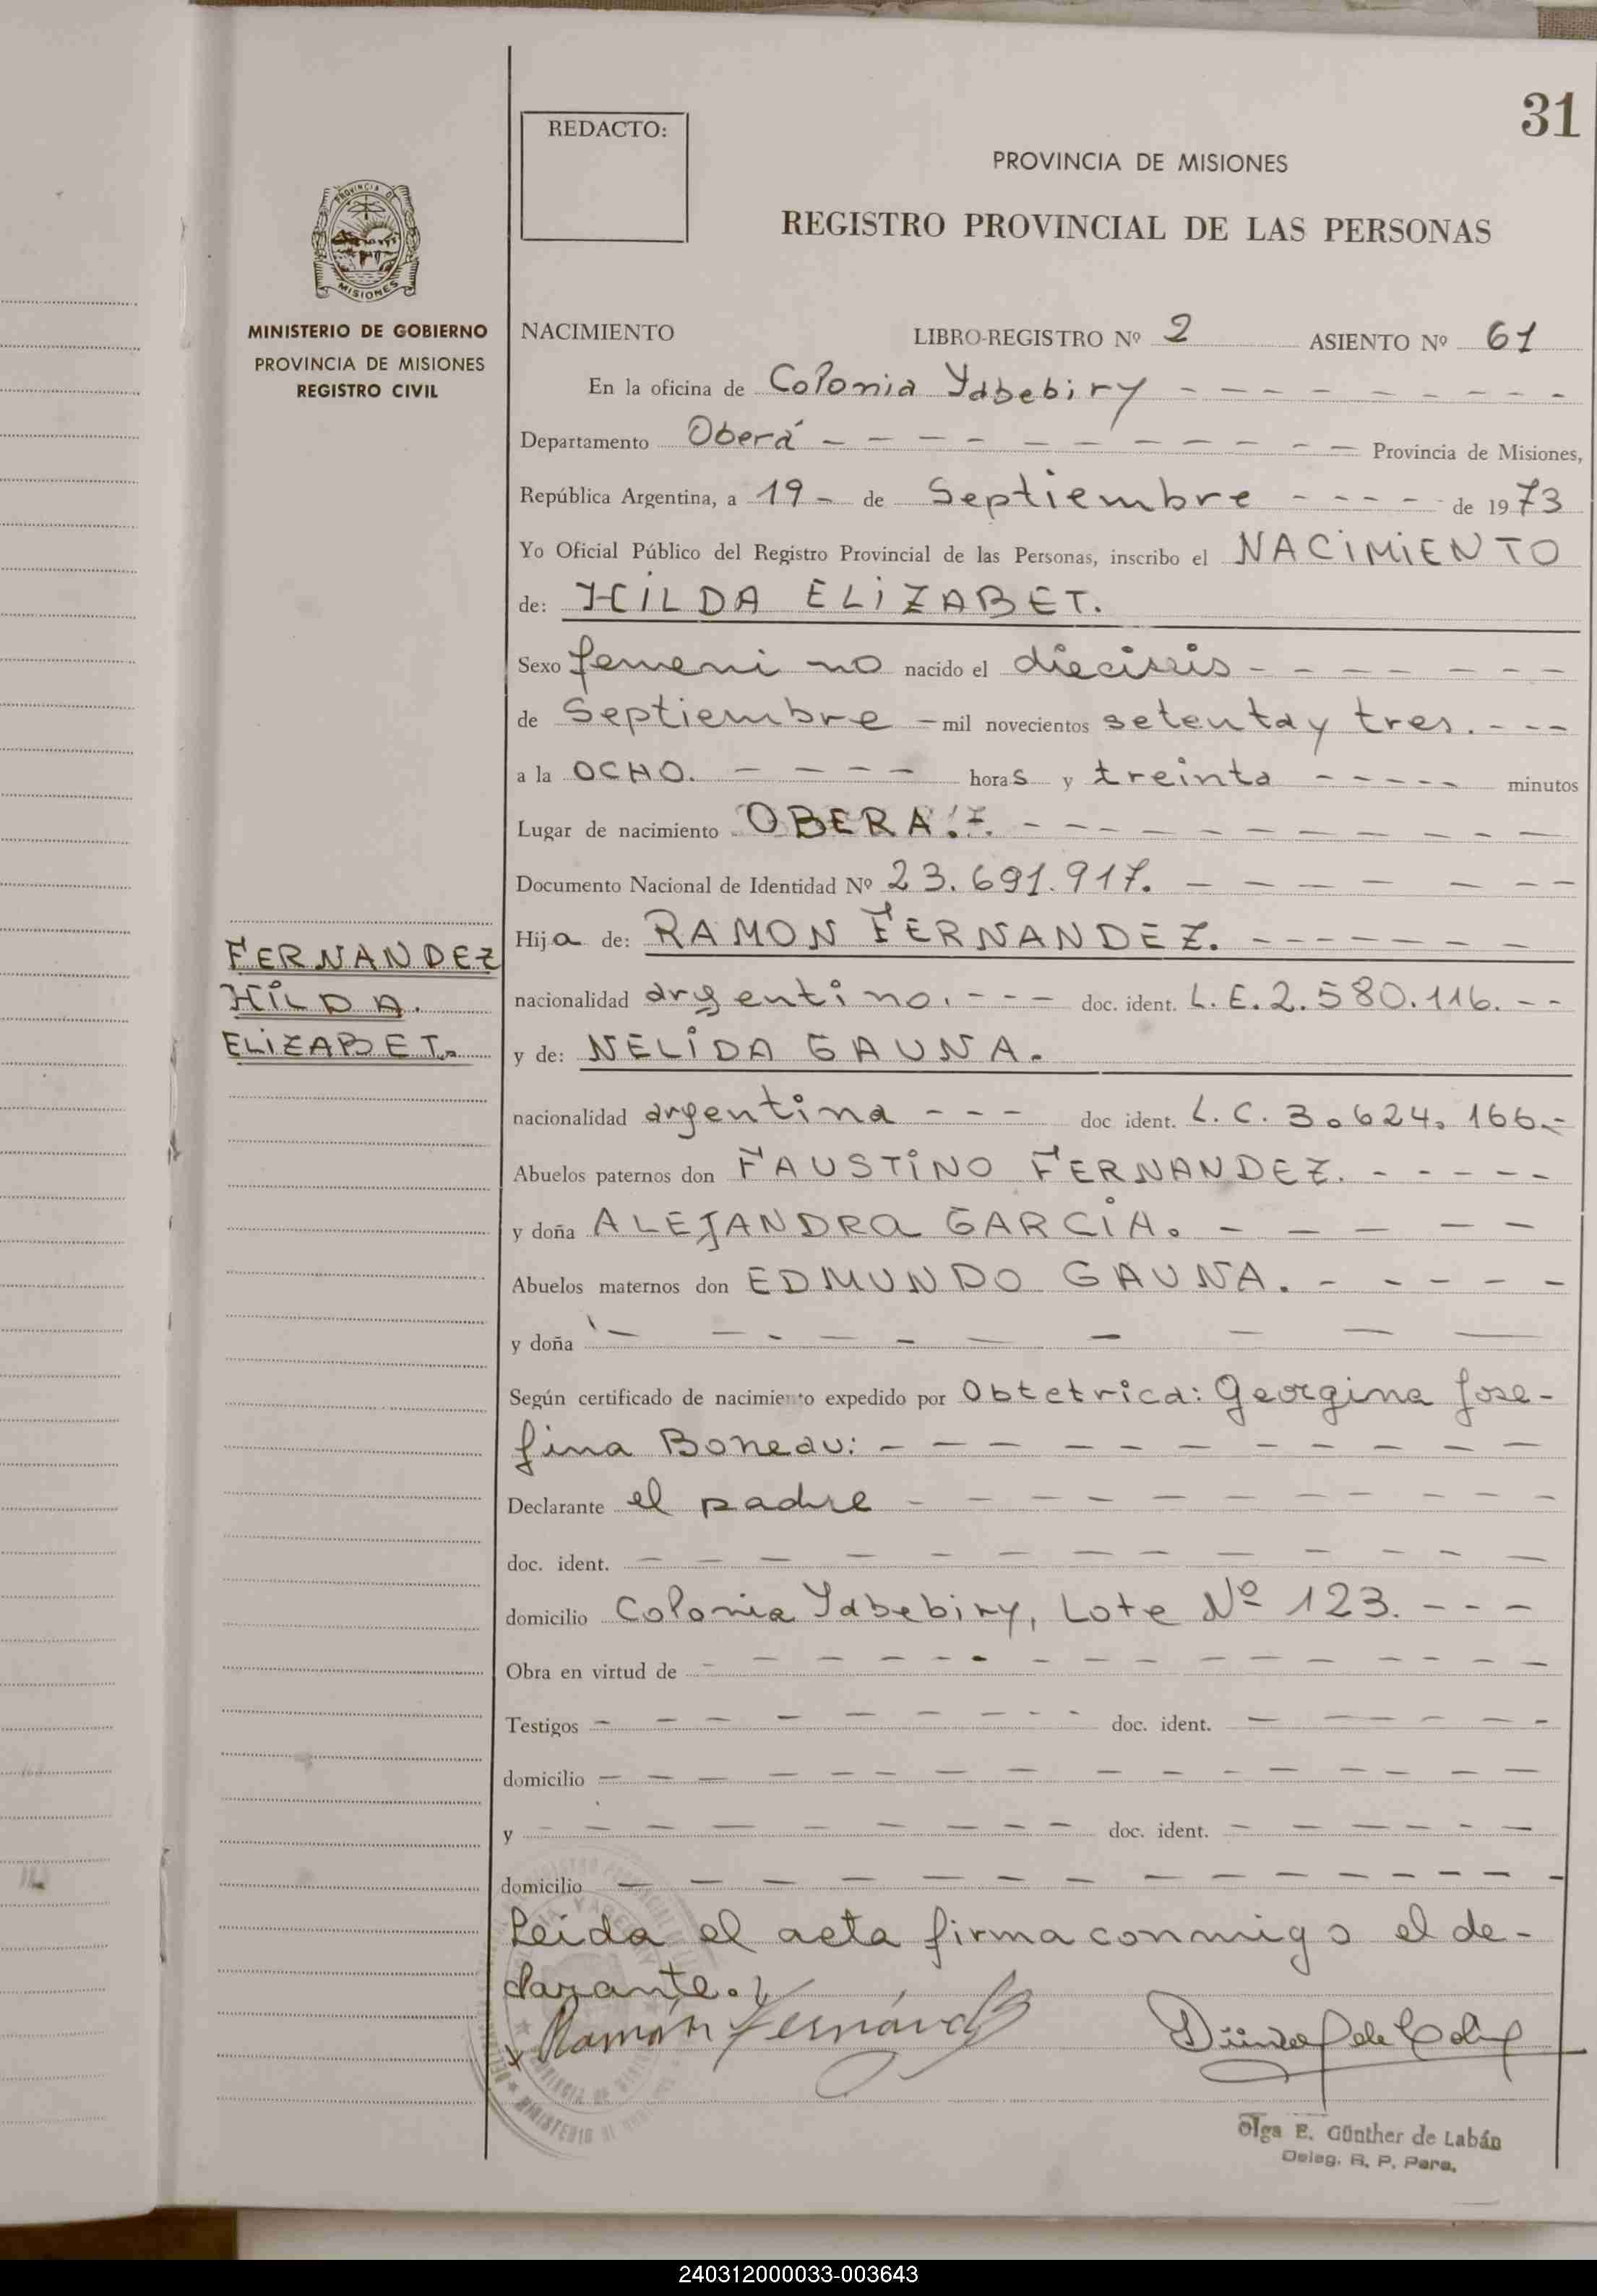 31
REDACTO:
PROVINCIA DE MISIONES
REGISTRO PROVINCIAL DE LAS PERSONAS
PROVINCIA DE
MISIONES
MINISTERIO DE GOBIERNO
PROVINCIA DE MISIONES
REGISTRO CIVIL
NACIMIENTO LIBRO-REGISTRO Nº 2 ASIENTO Nº 61
En la oficina de Colonia Yabebiry - - - - - - - - -
Departamento Oberá - - - - - - - - - - - Provincia de Misiones,
República Argentina, a 19 - de Septiembre - - - - - de 1973
Yo Oficial Público del Registro Provincial de las Personas, inscribo el NACIMIENTO
de: HILDA ELIZABET.
Sexo femenino nacido el dieciseis - - - - - - -
de Septiembre - mil novecientos setenta y tres. - - -
a la OCHO. - - - - - horas y treinta - - - - - minutos
Lugar de nacimiento OBERA. - - - - - - - - - - -
Documento Nacional de Identidad Nº 23.691.917. - - - - - - -
Hija de: RAMON FERNANDEZ. - - - - - - -
FERNANDEZ
HILDA.
ELIZABET.
nacionalidad argentino. - - - doc. ident. L.E.2.580.116. - -
y de: NELIDA GAUNA.
nacionalidad argentina - - - doc ident. L.C. 3.624.166.-
Abuelos paternos don FAUSTINO FERNANDEZ. - - - - -
y doña ALEJANDRA GARCIA. - - - - -
Abuelos maternos don EDMUNDO GAUNA. - - - - -
y doña - - - - - - - - - -
Según certificado de nacimiento expedido por Obtetrica: Georgina Jose-
fina Boneau: - - - - - - - - - - - -
Declarante el padre - - - - - - - - - -
doc. ident. - - - - - - - - - - - -
domicilio Colonia Yabebiry, Lote Nº 123. - - -
Obra en virtud de - - - - - - - - - - - - -
Testigos - - - - - - - - - doc. ident. - - - - -
domicilio - - - - - - - - - - - - -
y - - - - - - - - - doc. ident. - - - - - -
domicilio - - - - - - - - - - - - -
Leida el acta firma conmigo el de-
clarante.
Ramón Fernández
Olga E. Günther de Labán
Deleg. R. P. Pers.
240312000033-003643